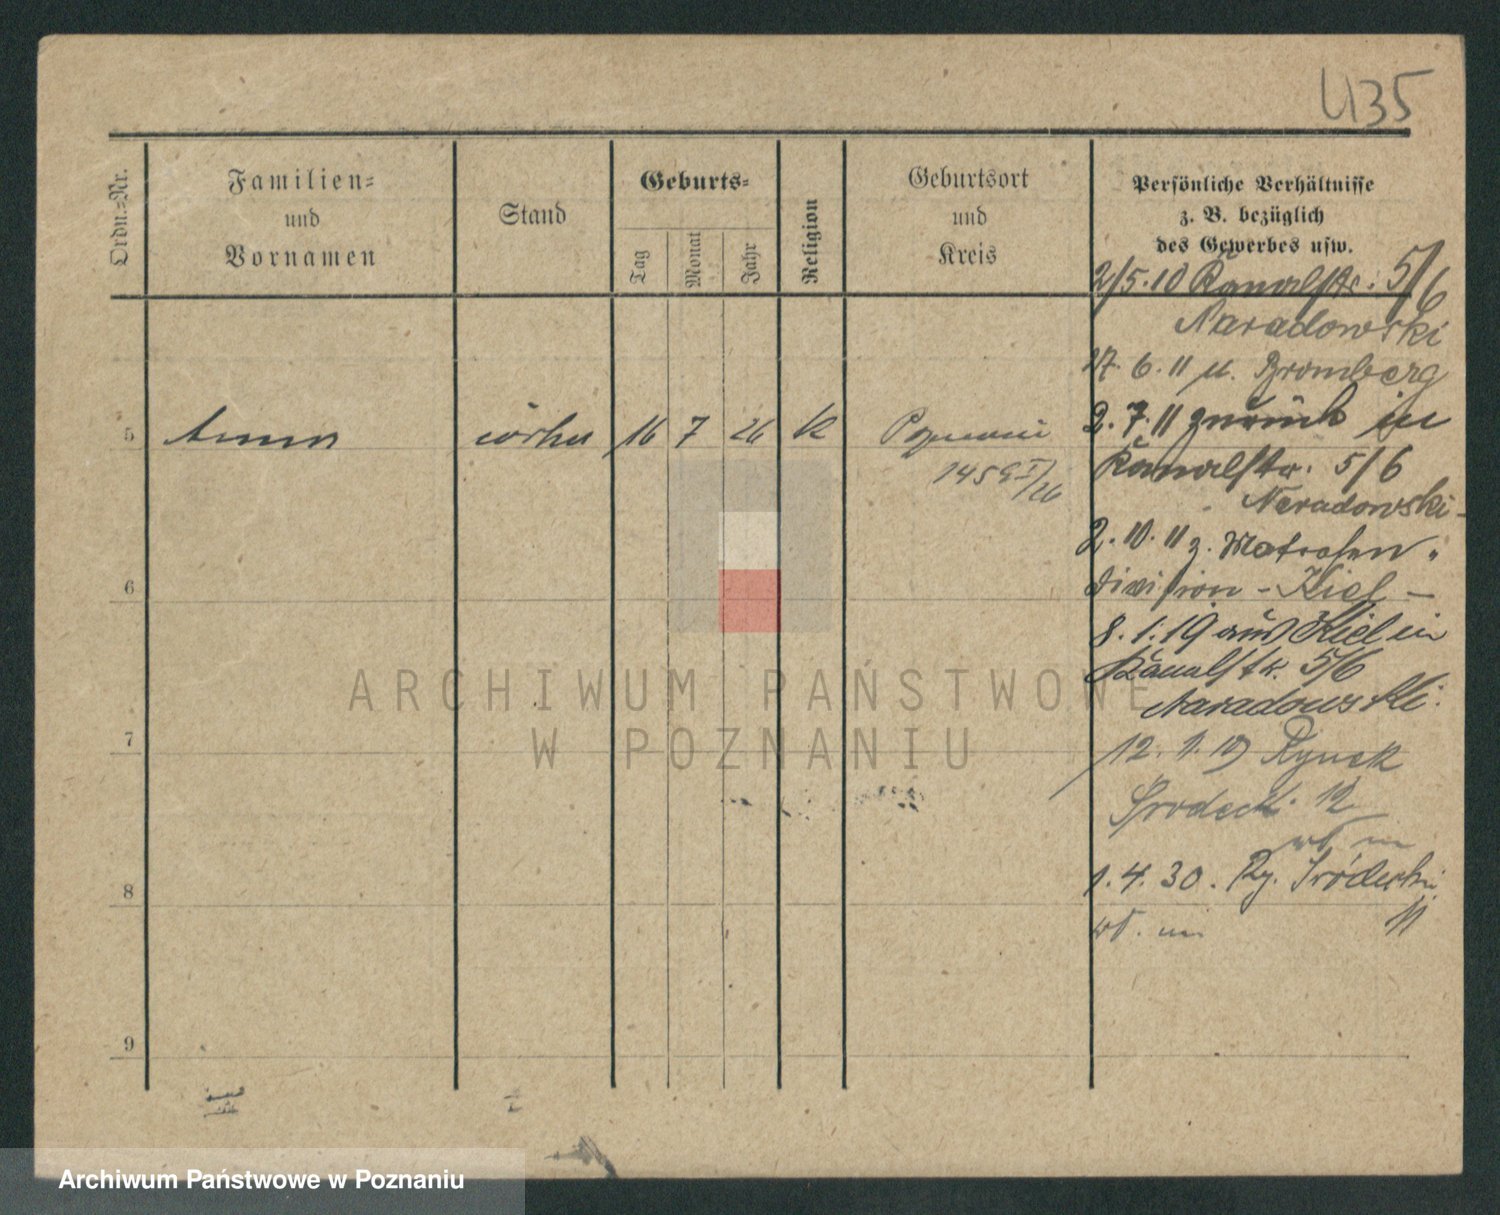 435
Ordn.=Nr.
Familien=
und
Vornamen
Stand
Geburts=
Tag
Monat
Jahr
Religion
Geburtsort
und
Kreis
Persönliche Verhältnisse
z. B. bezüglich
des Gewerbes usw.
2/5.10 Kanalstr. 5/6
Naradowski
17. 6. 11 n. Bromberg
2. 7. 11 zurück in
Kanalstr. 5/6
Naradowski -
2. 10. 11 z. Matrosen
division - Kiel -
8. 1. 19 aus Kiel in
Kanalstr. 5/6
Naradowski.
12. 1. 19 Rynek
Srodecki 12
1. 4. 30. Ry. Śródecki
11
5 Anna córka 16 7 26 K Poznań
6
7
8
9
ARCHIWUM PAŃSTWOWE
W POZNANIU
Archiwum Państwowe w Poznaniu